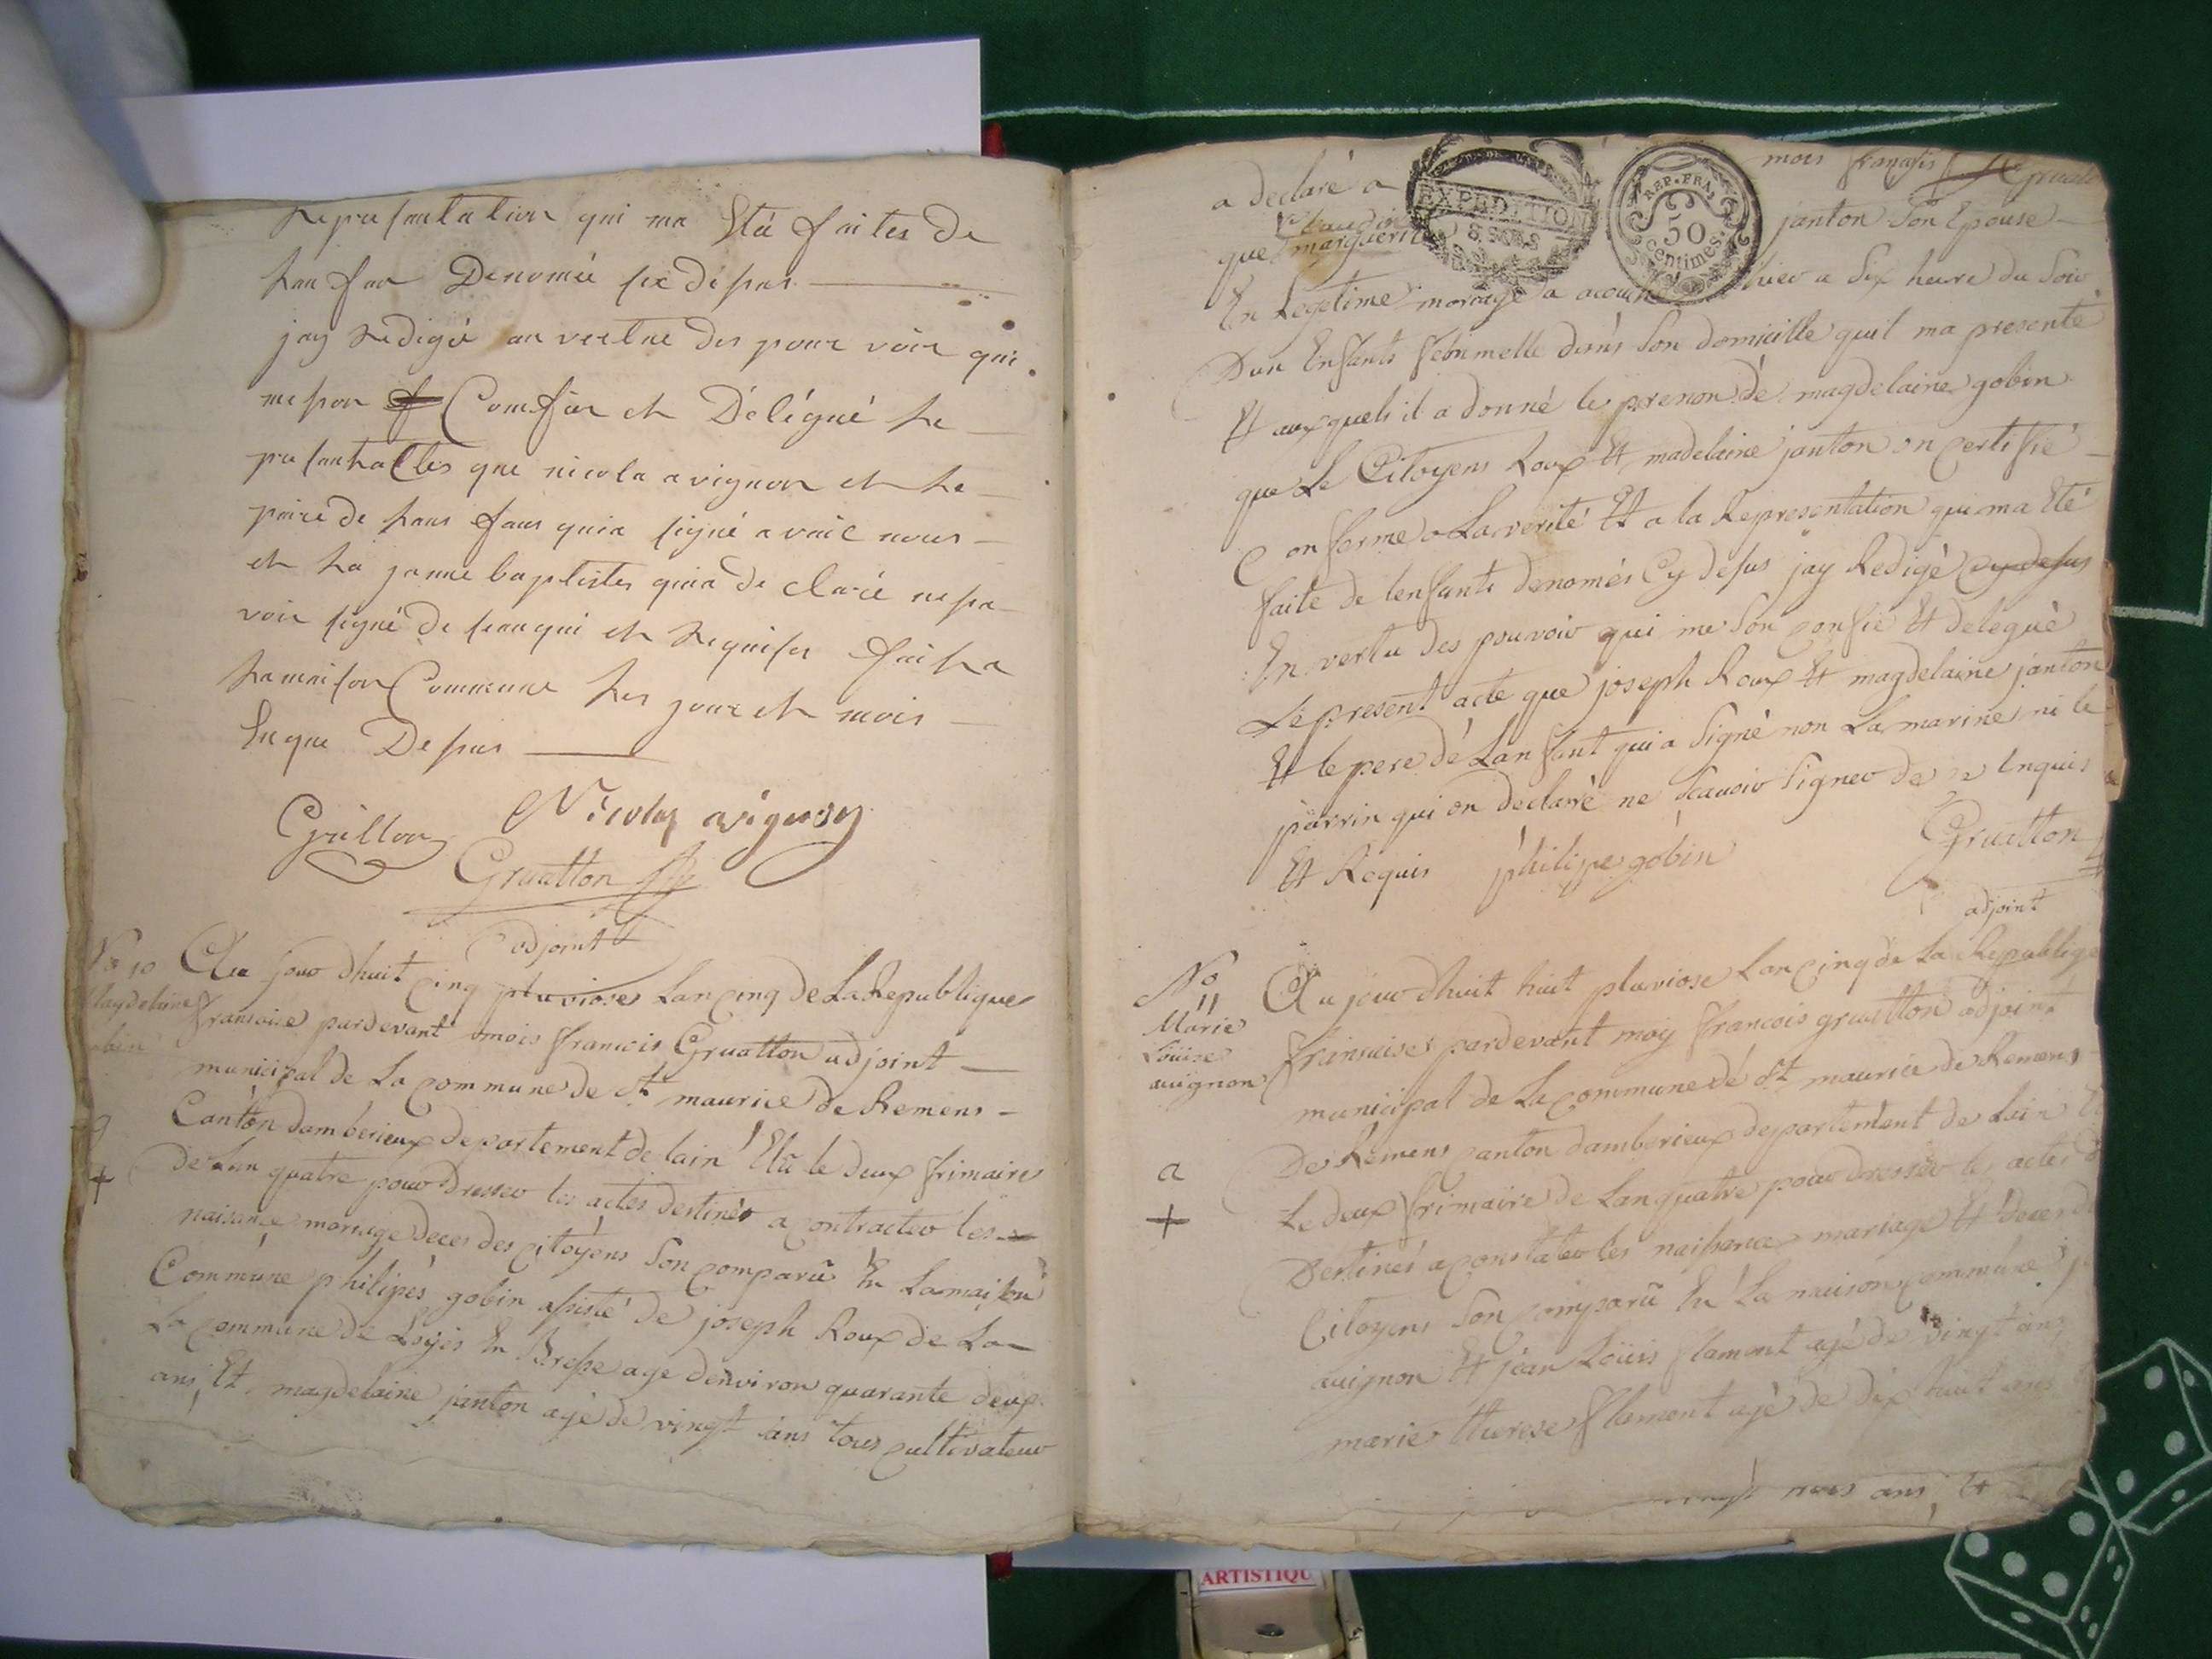 Representation qui ma Eté faites de
Lan fan Denomée six desus
jay redigée an vertue des pour voir qui
me son Comfier et Délégué Le
presentactes que nicola avignon et Le
paire de Lans fans quia signé avaic nous
et La janne baptistes quia de claré nesa
voir signé de seanqui et Requises faih a
La maison Commune Les jour et mois
En que Desus
Grillon Nicolas avignon
Gruatton
adjoint
No 10 Au jour dhuit cinq pluviose Lan cinq de La Republique
Magdelaine fransoise pardevant mois francois Gruatton adjoint
gobin municipal de La commune de St maurice de Remens
Canton damberieux departement de lain Elû le deux frimaire
De Lan quatre pour dresser les actes destinés a contracter les
naisance mariage deces des citoyens Son comparû En La maison
Commune philipes gobin asisté de joseph Roux de La
La commune de Loyes En Bresse age denviron quarante deux
ans Et magdelaine janton agé de vingt ans tous cultivateur
+
a declaré a mois francois Gruatton
EXPEDITION
8 SOLS
REP. FRA.
50
centimes.
que marguerite janton Son Epouse
En Legetime mariage a acouche hier a Six heure du Soir
Dun Enfants febumelle dans Son domicille quil ma presenté
Et auxquels il a donné le prenon de magdelaine gobin
que Le Citoyens Roux Et madelaine janton on certifié
Conforme a La verité Et a la Representation qui ma Eté
faite de lenfants denomés Cy desus jay Redigé cy desus
En vertu des pouvoir qui me Son confié Et delegué
Le present acte que joseph Roux Et magdelaine janton
Et le pere de Lanfant qui a Signé non La marine ni le
parrin qui on declaré ne Scavoir Signer de ce Enquis
Et Requis philippe gobin Gruatton
adjoint
No 11 Au jour dhuit huit pluviose Lan cinq de La Republique
Marie Louise avignon fransaise pardevant moy francois gruatton adjoint
municipal de La commune de St maurice de Remens
De Remens canton damberieux departement de Lain
a
+
Le deux frimaire de Lan quatre pour dresser les actes
Destinés a constater les naisance mariage Et deces
Citoyens Son comparû En La maison commune
avignon Et jean Loüis flamant agé de vingt ans
marie therese flamant agé de dix huit ans
vingt trois ans Et